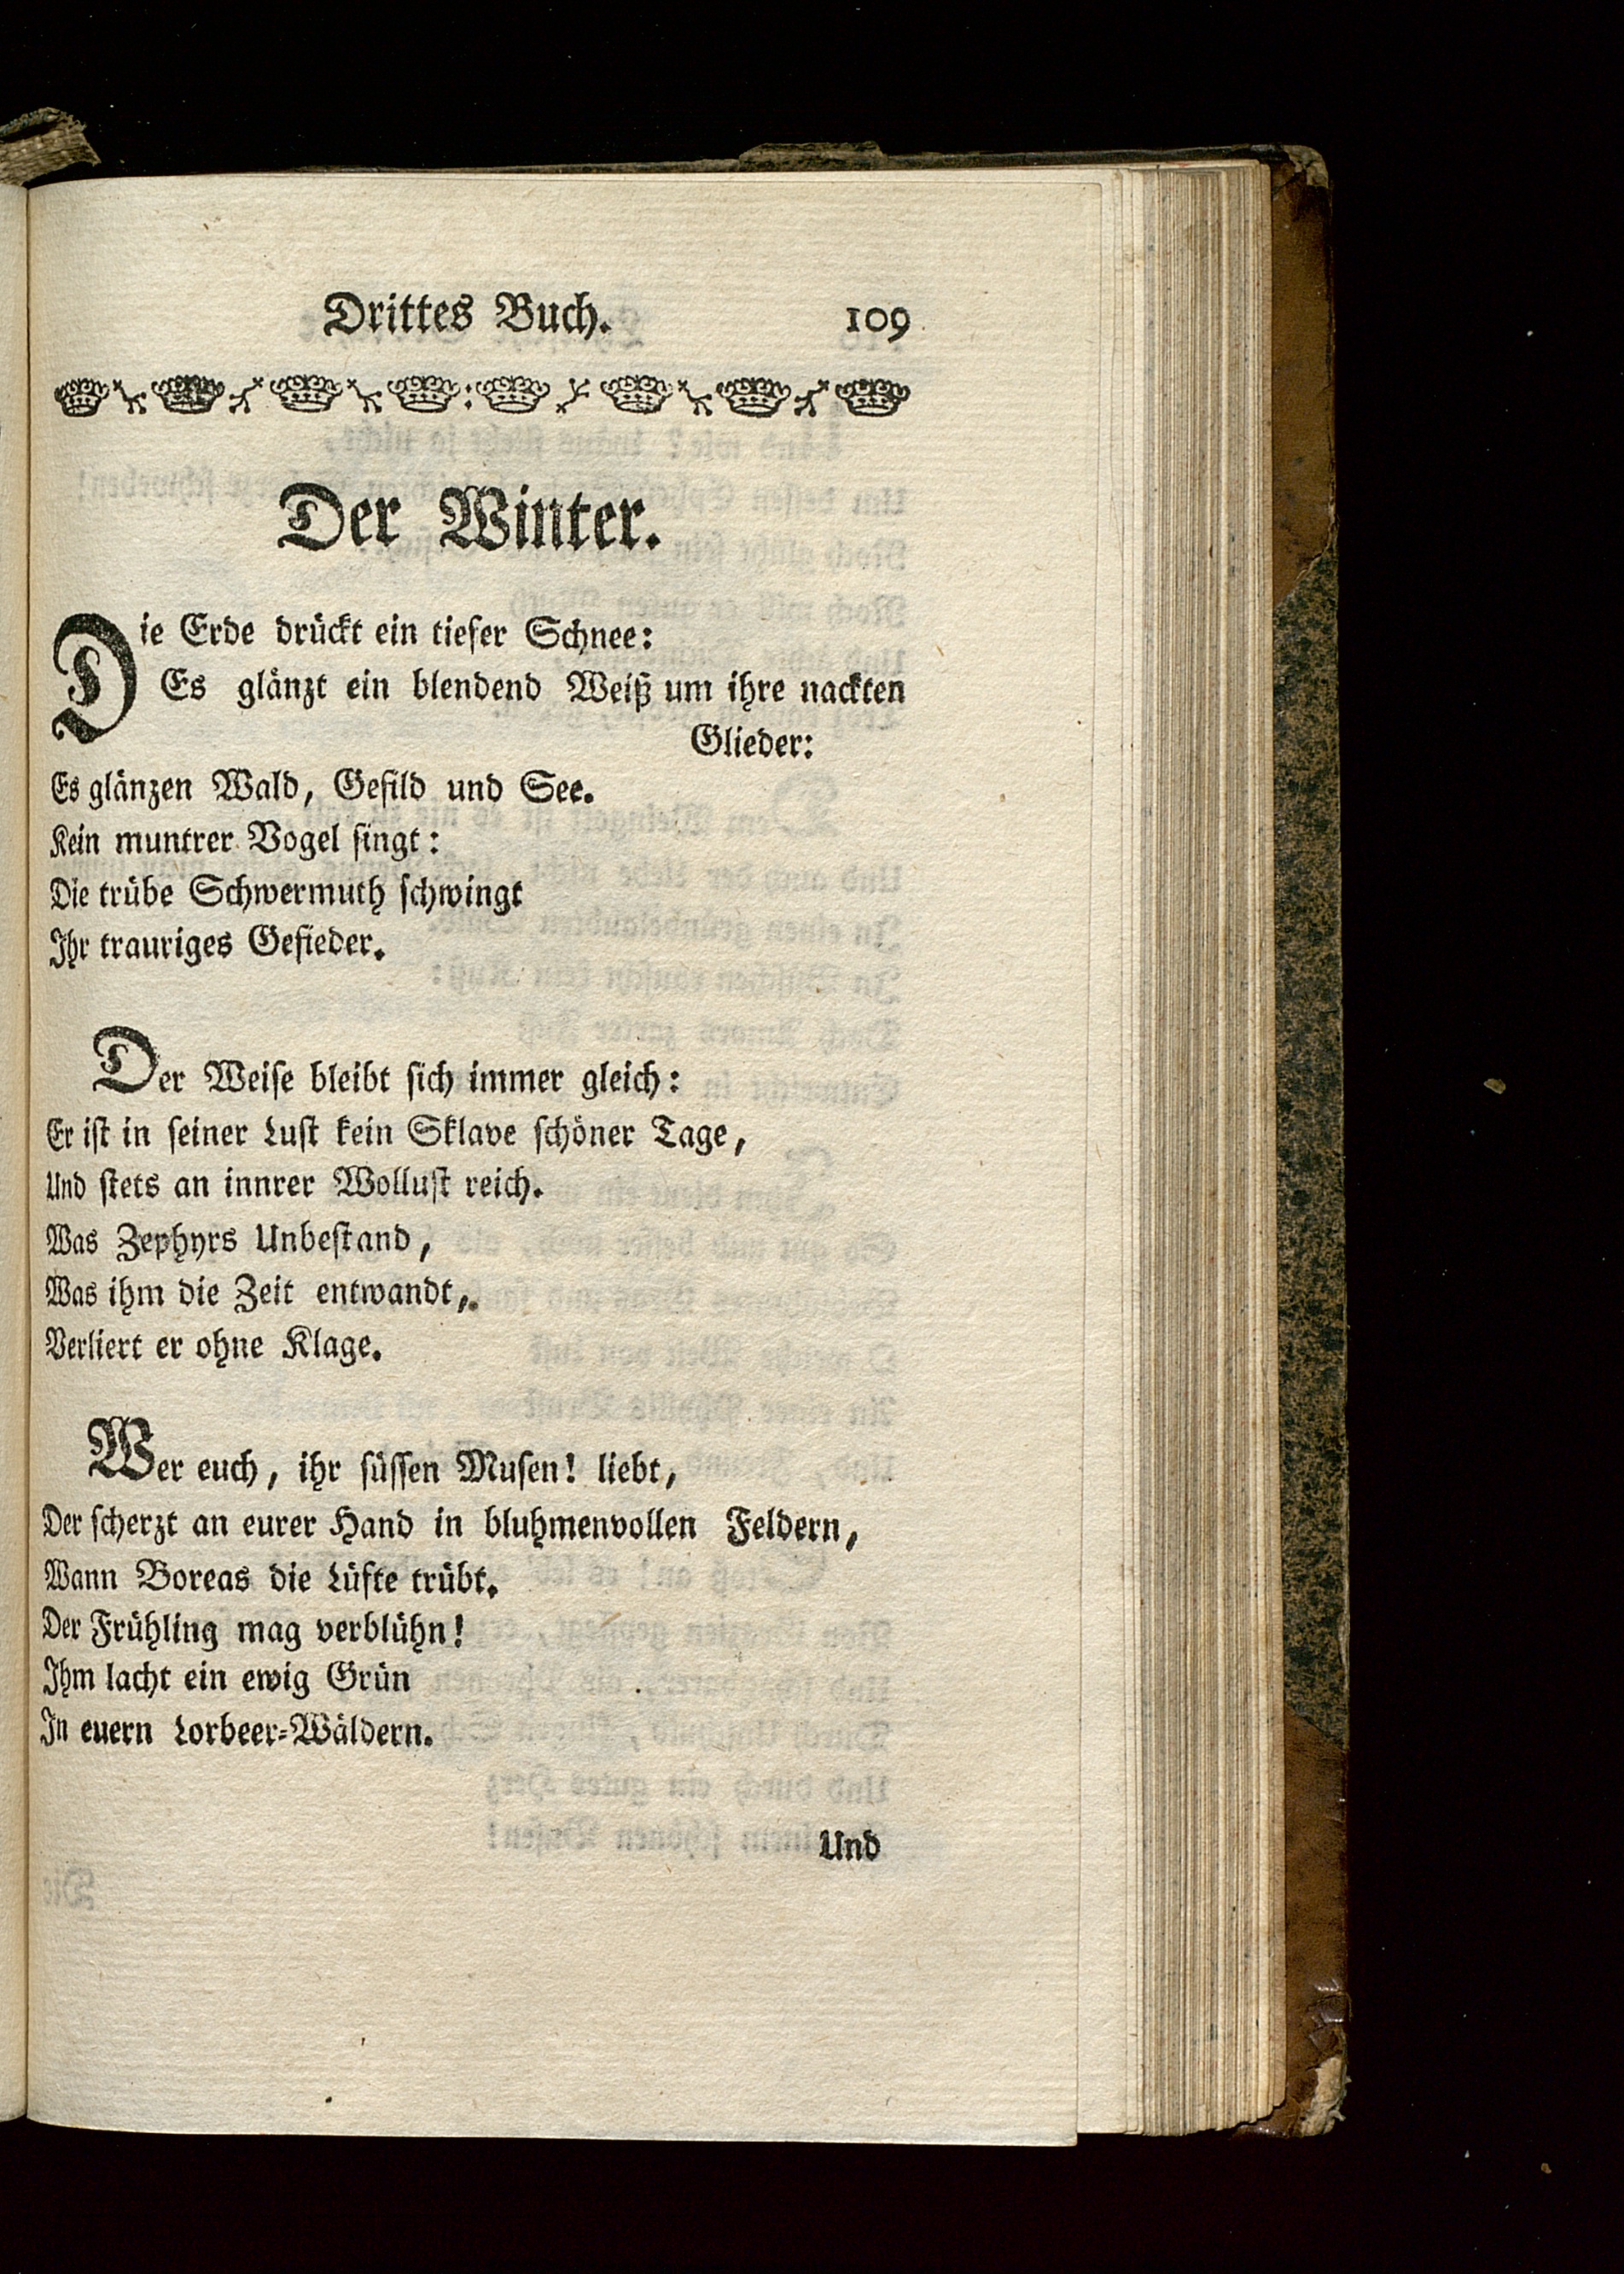 Drittes Buch. 109
Der Winter.
Die Erde drückt ein tiefer Schnee:
Es glänzt ein blendend Weiß um ihre nackten
Glieder:
Es glänzen Wald, Gefild und See.
Kein muntrer Vogel singt:
Die trübe Schwermuth schwingt
Ihr trauriges Gefieder.
Der Weise bleibt sich immer gleich:
Er ist in seiner Lust kein Sklave schöner Tage,
Und stets an innrer Wollust reich.
Was Zephyrs Unbestand,
Was ihm die Zeit entwandt,
Verliert er ohne Klage.
Wer euch, ihr süssen Musen! liebt,
Der scherzt an eurer Hand in bluhmenvollen Feldern,
Wann Boreas die Lüfte trübt.
Der Frühling mag verblühn!
Ihm lacht ein ewig Grün
In euern Lorbeer-Wäldern.
Und